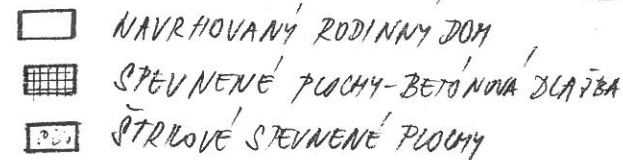 NAVRHOVANÝ RODINNÝ DOM
SPEVNENÉ PLOCHY-BETÓNOVÁ DLAŽBA
ŠTRKOVÉ SPEVNENÉ PLOCHY